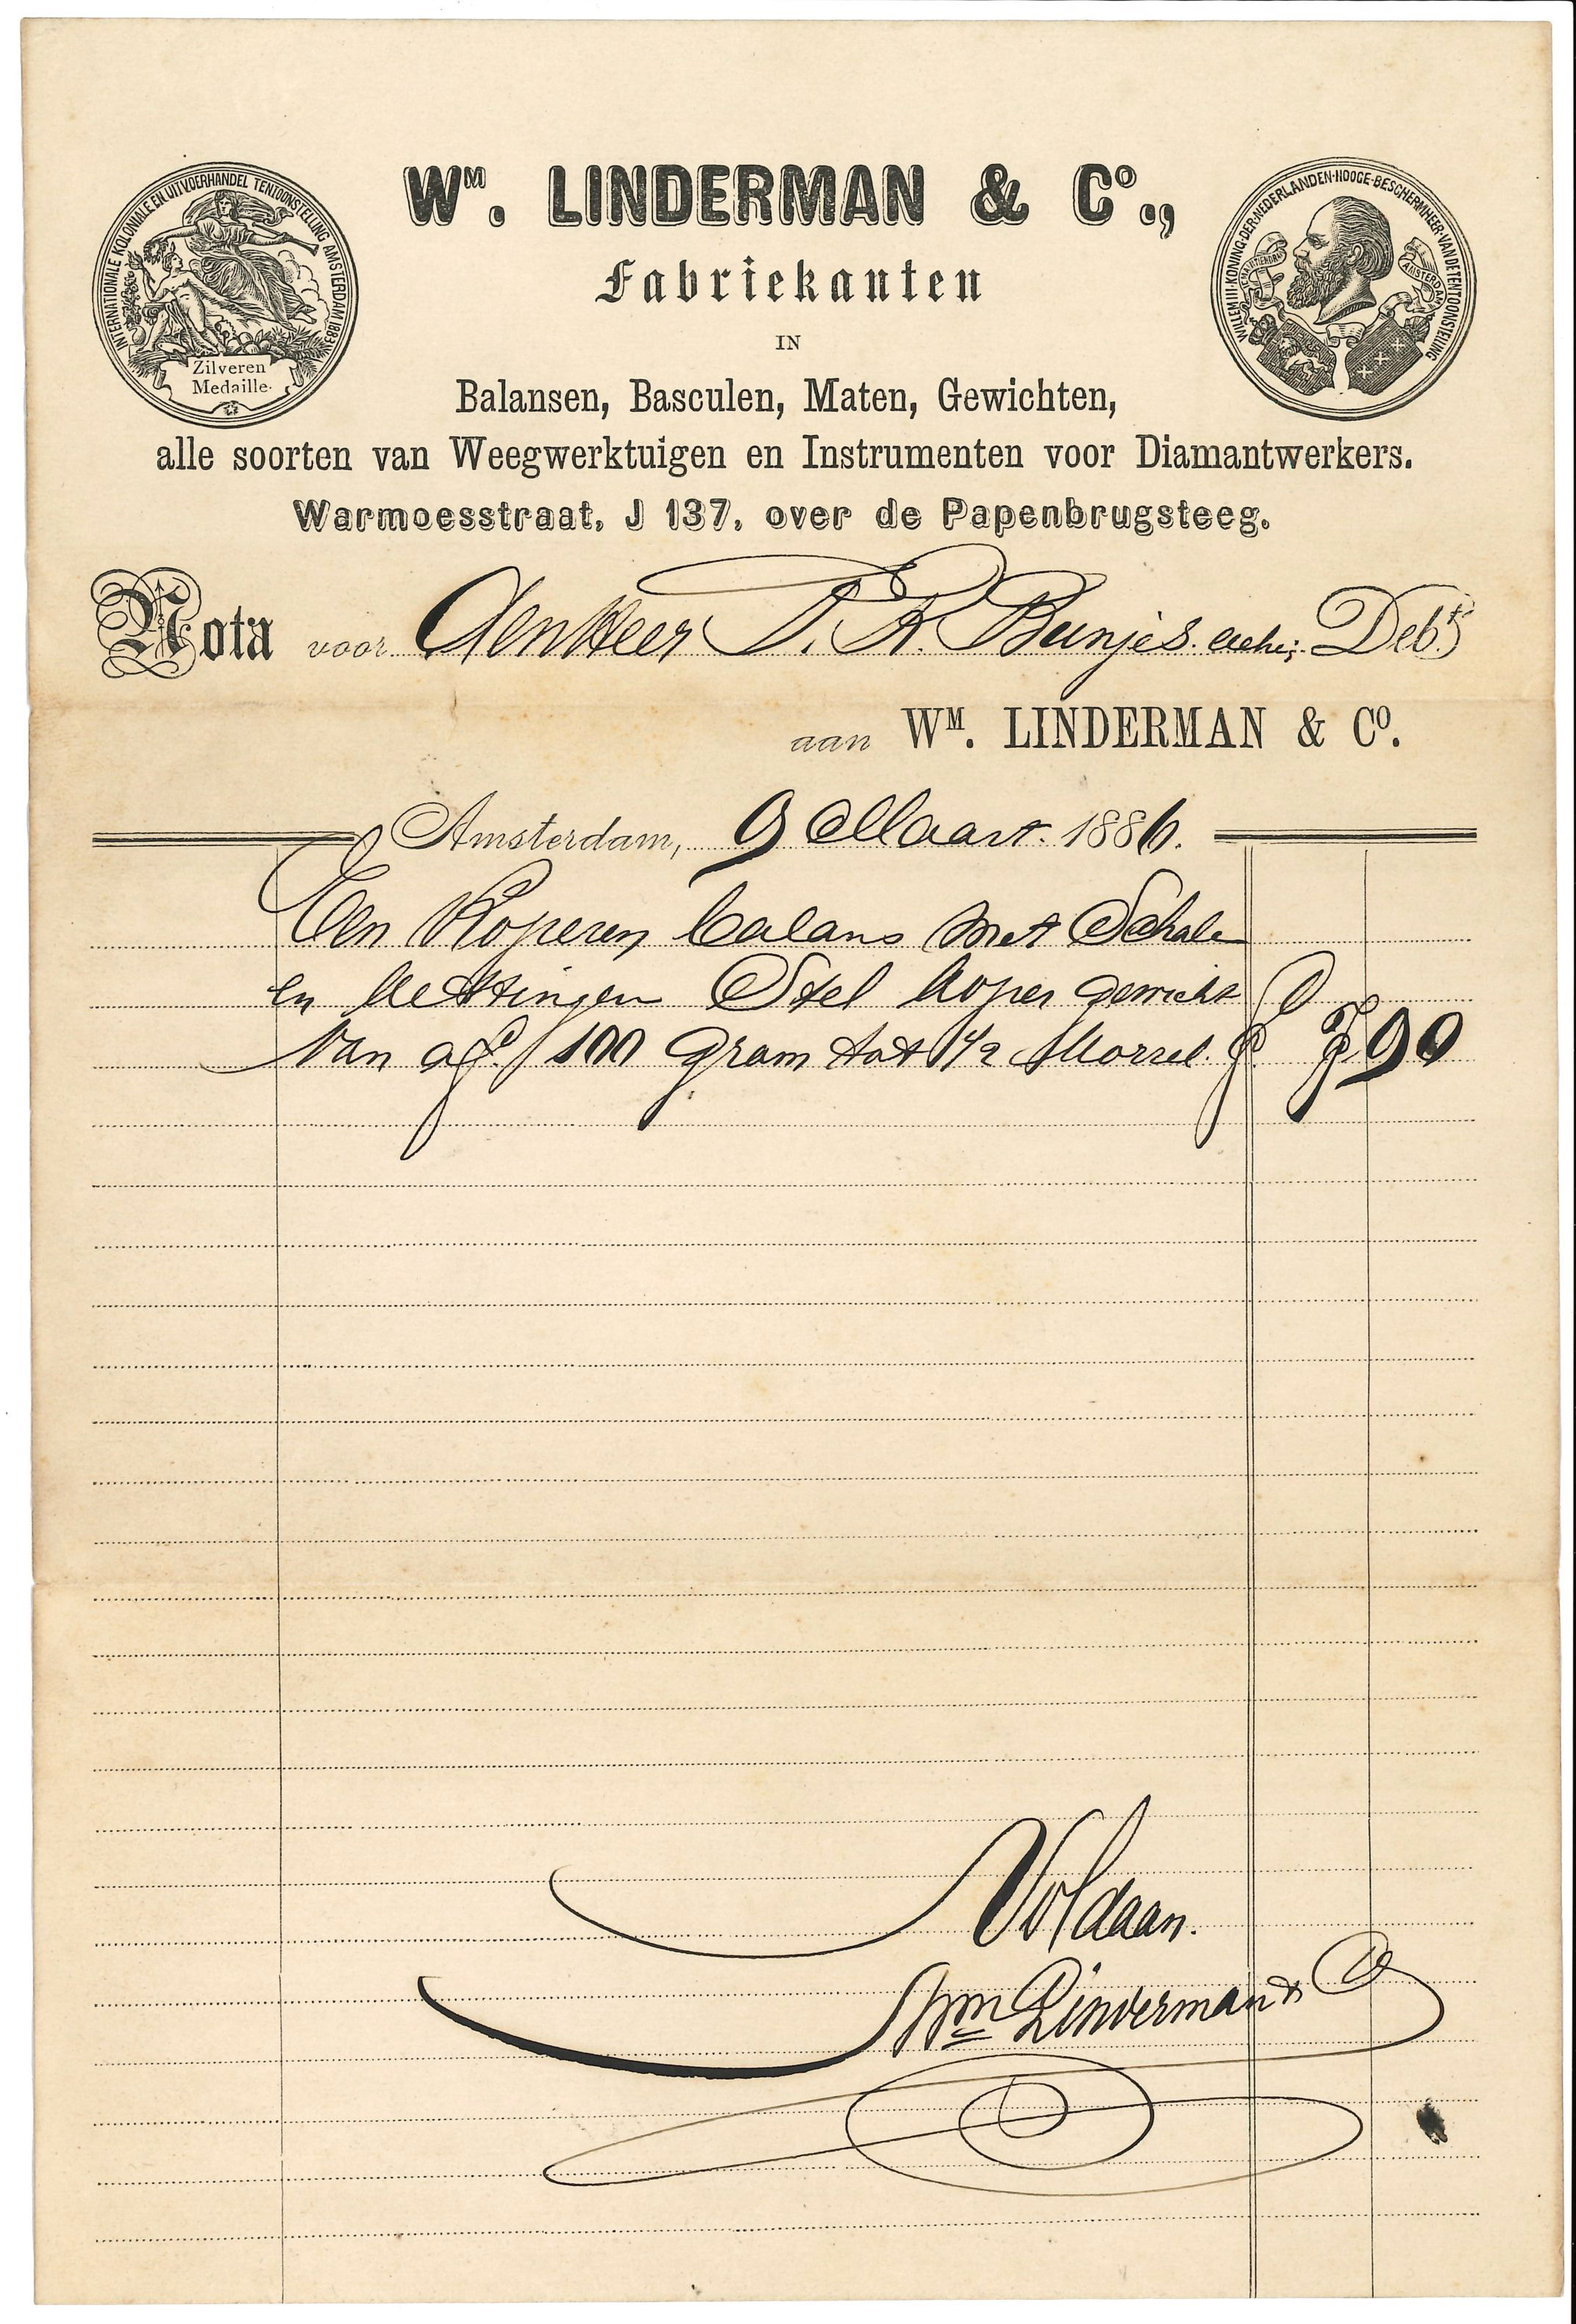 INTERNATIONALE KOLONIALE EN UITVOERHANDEL TENTOONSTELLING AMSTERDAM 1883
Zilveren
Medaille
WM. LINDERMAN & Co.,
WILLEM III·KONING·DER·NEDERLANDEN·HOOGE·BESCHERMHEER·VAN DE TENTOONSTELLING
AMSTERDAM
Fabriekanten
IN
Balansen, Basculen, Maten, Gewichten,
alle soorten van Weegwerktuigen en Instrumenten voor Diamantwerkers.
Warmoesstraat, J 137, over de Papenbrugsteeg.
Nota voor den Heer Bunjes. Debt
aan WM. LINDERMAN & Co.
Amsterdam, 9 Maart. 1886.
Een Koperen balans met Schale
en Kettingen Stel koper gewicht
van af 100 gram tot 1/2 f 7 90
Voldaan.
Wm Linderman & Co